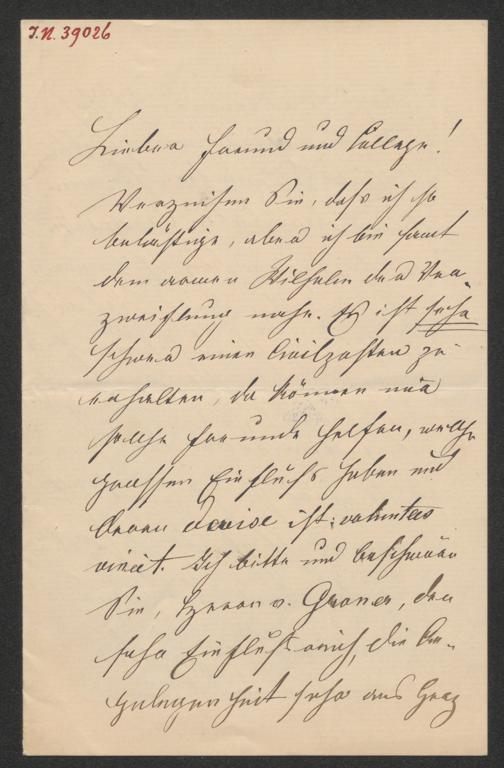 I.N. 39026
Lieber Freund und College!
Verzeihen Sie, daß ich so
belästige, aber ich bin samt
dem armen Wilhelm der Ver-
zweiflung nahe. Es ist sehr
schwer einen Civilposten zu
erhalten, da können nur
solche Freunde helfen, welche
grossen Einfluß haben und
deren Devise ist: voluntas
vincit. Ich bitte und beschwöre
Sie, Herrn v. Groner, den
sehr Einflußreich, die An-
gelegenheit sehr ans Herz